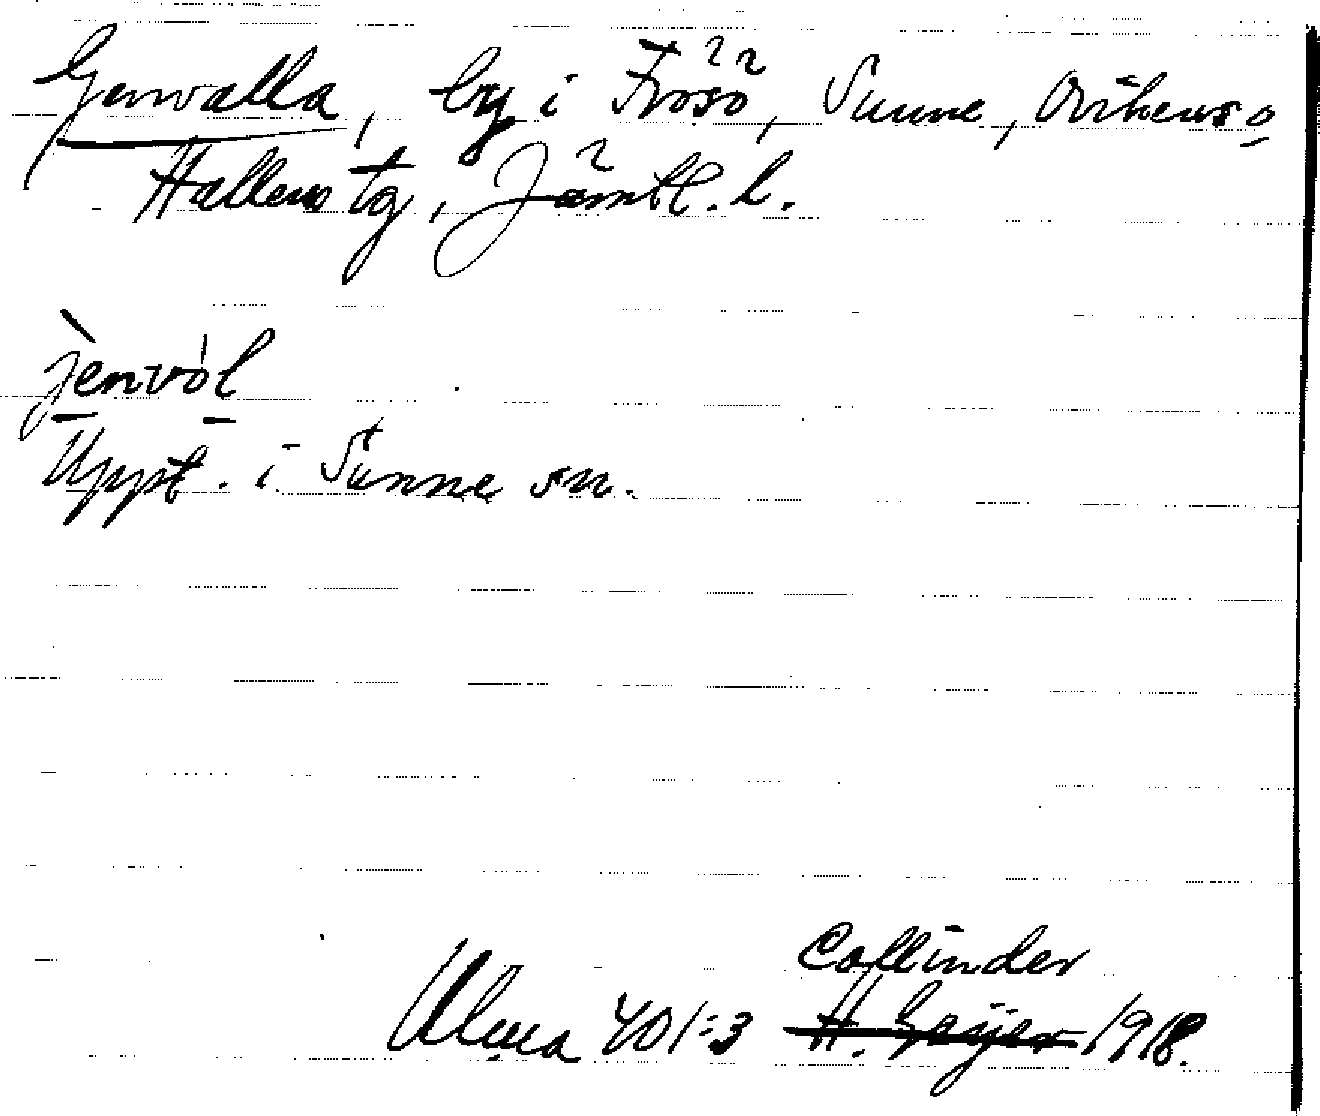 Genvalla, by i Frösö, Sunne, Ovikens o
Hallens tg, Jämtl. l.
jènvòl
Uppt. i Sunne sn.
Collinder
Ulma 401:3 H. Geijer 1918.